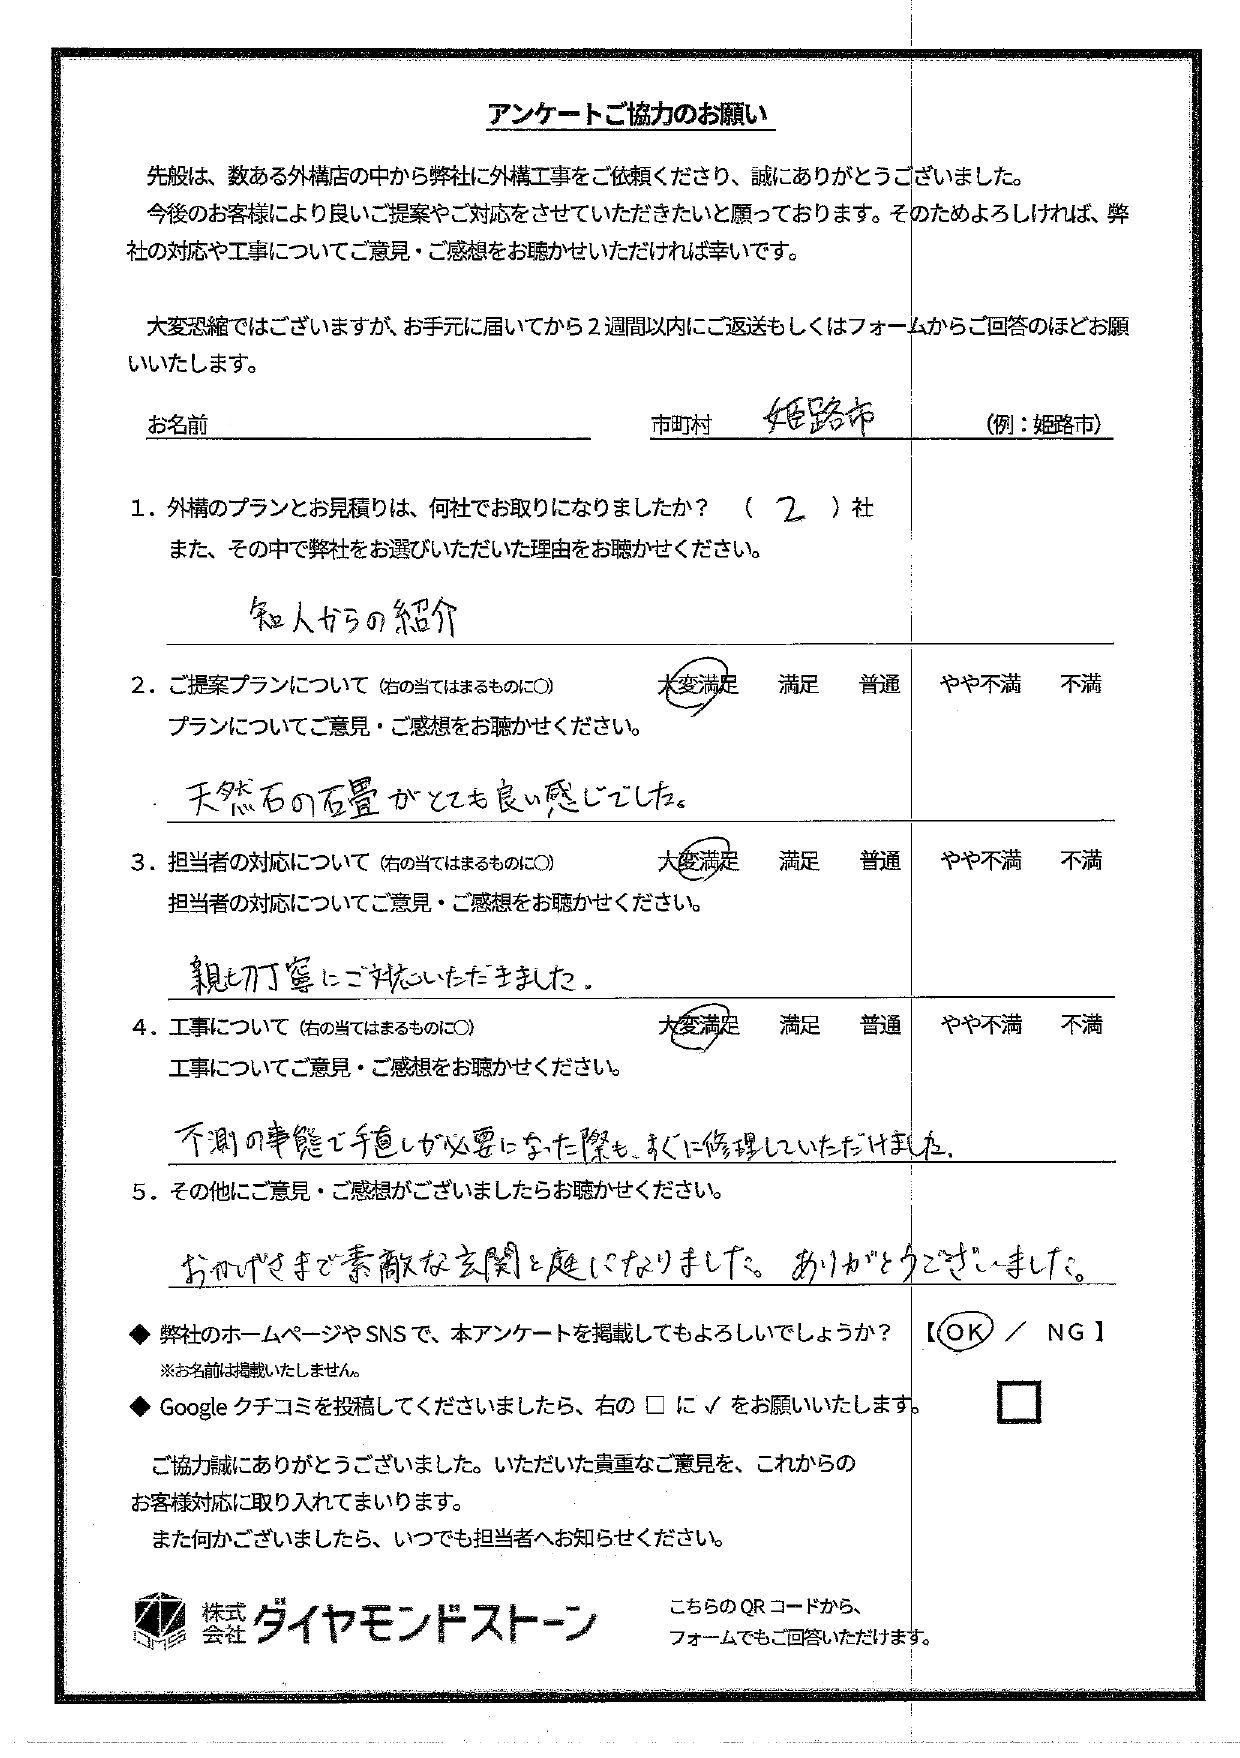 アンケートご協力のお願い
先般は、数ある外構店の中から弊社に外構工事をご依頼くださり、誠にありがとうございました。
今後のお客様により良いご提案やご対応をさせていただきたいと願っております。そのためよろしければ、弊
社の対応や工事についてご意見・ご感想をお聴かせいただければ幸いです。
大変恐縮ではございますが、お手元に届いてから２週間以内にご返送もしくはフォームからご回答のほどお願
いいたします。
お名前 市町村 姫路市 （例：姫路市）
１．外構のプランとお見積りは、何社でお取りになりましたか？ （ 2 ）社
また、その中で弊社をお選びいただいた理由をお聴かせください。
知人からの紹介
２．ご提案プランについて（右の当てはまるものに○） 大変満足 満足 普通 やや不満 不満
プランについてご意見・ご感想をお聴かせください。
天然石の石畳がとても良い感じでした。
３．担当者の対応について（右の当てはまるものに○） 大変満足 満足 普通 やや不満 不満
担当者の対応についてご意見・ご感想をお聴かせください。
親切丁寧にご対応いただきました.
４．工事について（右の当てはまるものに○） 大変満足 満足 普通 やや不満 不満
工事についてご意見・ご感想をお聴かせください。
不測の事態で手直しが必要になった際も、すぐに修理していただけました.
５．その他にご意見・ご感想がございましたらお聴かせください。
おかげさまで素敵な玄関と庭になりました。 ありがとうございました。
◆ 弊社のホームページや SNS で、本アンケートを掲載してもよろしいでしょうか？ 【 OK ／ NG 】
※お名前は掲載いたしません。
◆ Google クチコミを投稿してくださいましたら、右の □ に ✓ をお願いいたします。 □
ご協力誠にありがとうございました。いただいた貴重なご意見を、これからの
お客様対応に取り入れてまいります。
また何かございましたら、いつでも担当者へお知らせください。
株式会社 ダイヤモンドストーン
こちらの QR コードから、
フォームでもご回答いただけます。